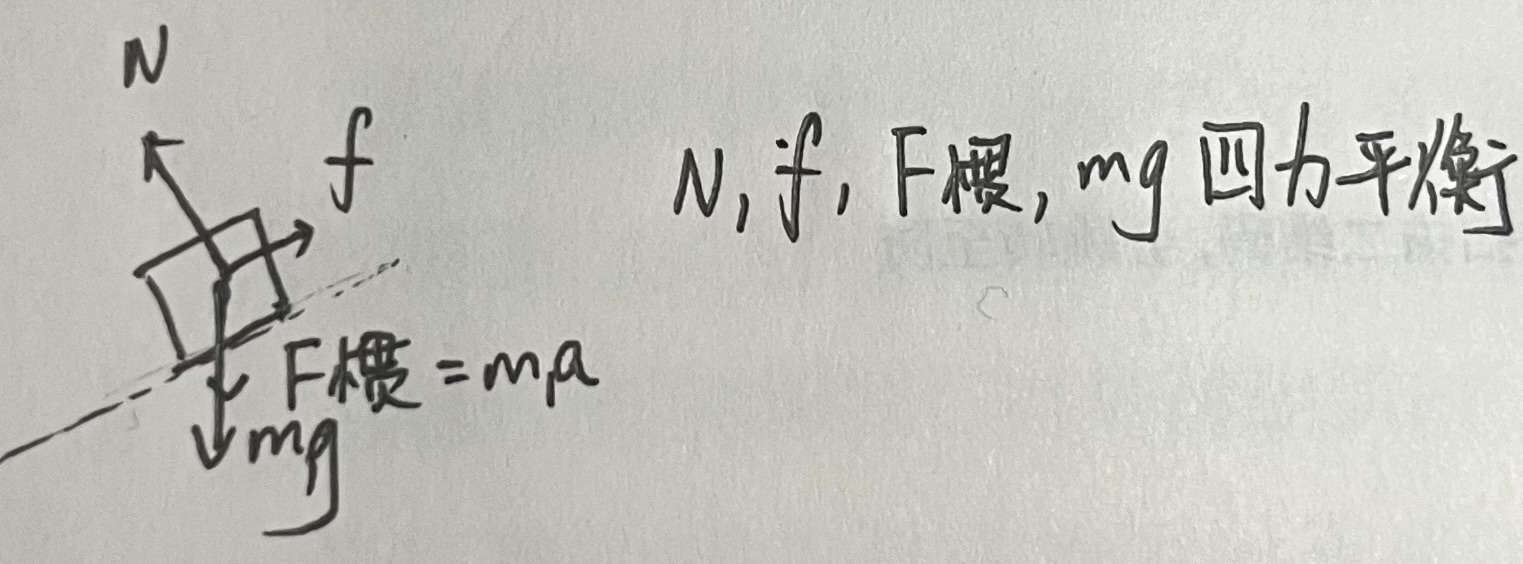 N
f
N, f, F惯, mg 四力平衡
F惯 = ma
mg